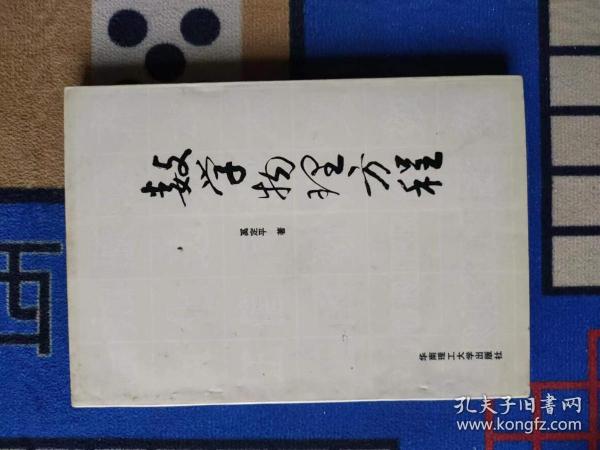 数学物理方程
奚定平 著
华南理工大学出版社
西
孔夫子旧书网
www.kongfz.com